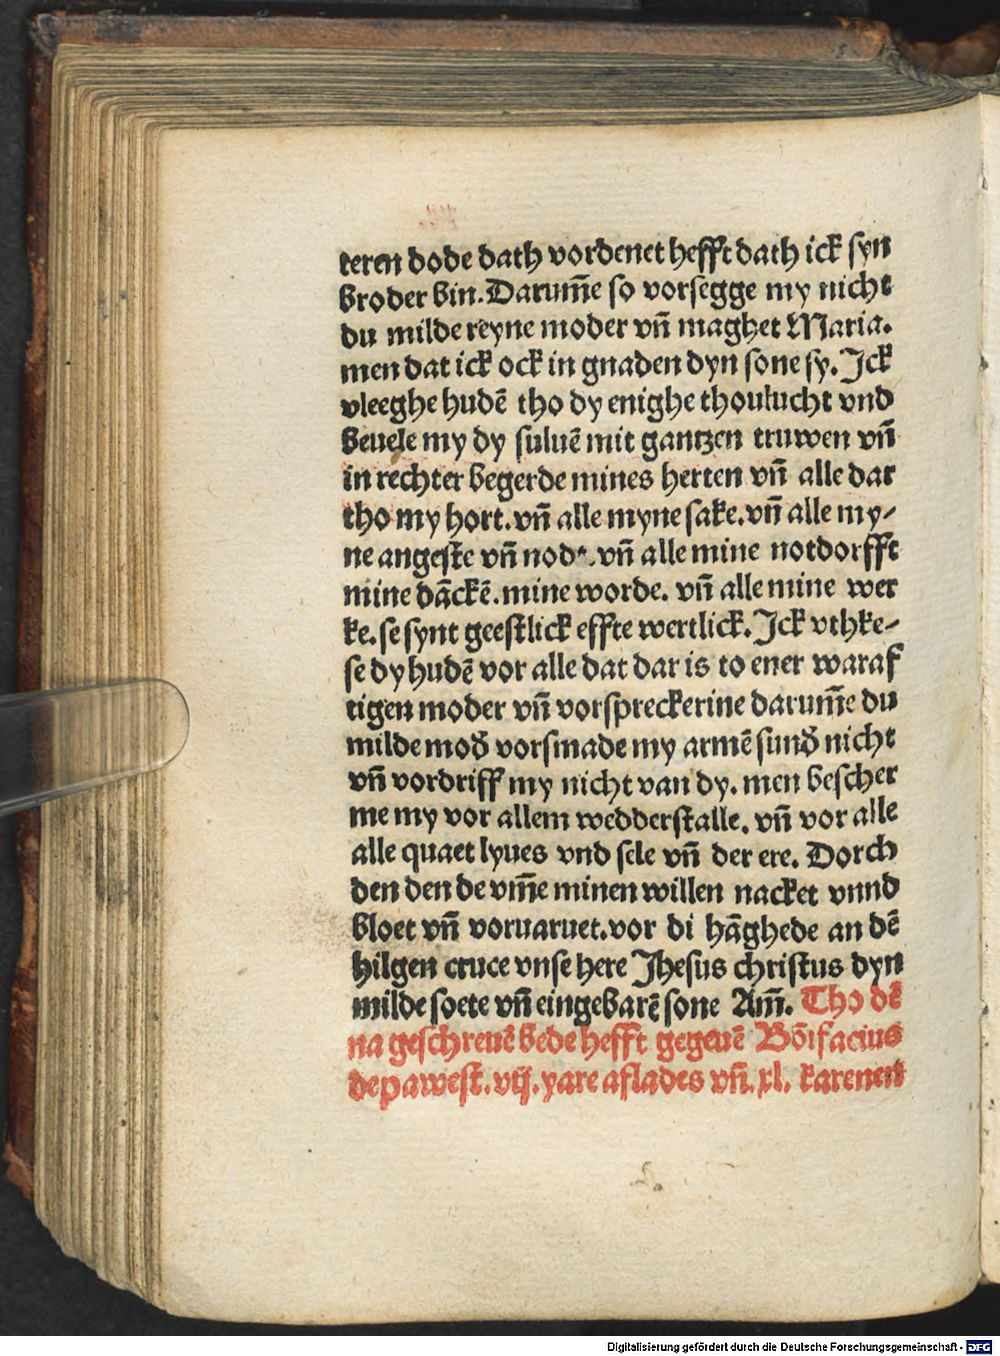 teren dode dath vordenet hefft dath ick syn
broder bin. Darum̄e so vorsegge my nicht
du milde reyne moder vn̄ maghet Maria.
men dat ick ock in gnaden dyn sone sy. Ick
vleeghe hudē tho dy enighe thoulucht vnd
beuele my dy suluē mit gantzen truwen vn̄
in rechter begerde mines herten vn̄ alle dar
tho my hort. vn̄ alle myne sake. vn̄ alle my-
ne angeste vn̄ nod*. vn̄ alle mine notdorfft
mine dāckē. mine worde. vn̄ alle mine wer
ke. se synt geestlick effte wertlick. Ick vthke-
se dy hudē vor alle dat dar is to ener waraf
tigen moder vn̄ vorspreckerine darum̄e du
milde mod̄ vorsmade my armē sund̄ nicht
vn̄ vordriff my nicht van dy. men bescher
me my vor allem wedderstalle. vn̄ vor alle
alle quaet lyues vnd sele vn̄ der ere. Dorch
den den de vm̄e minen willen nacket vnnd
bloet vn̄ voruaruet. vor di hāghede an dē
hilgen cruce vnse here Jhesus christus dyn
milde soete vn̄ eingebarē sone Am̄. Tho dē
na geschreuē bede hefft gegeuē Bōifacius
de pawest. vij. yare aflades vn̄. xl. karenen
Digitalisierung gefördert durch die Deutsche Forschungsgemeinschaft - DFG